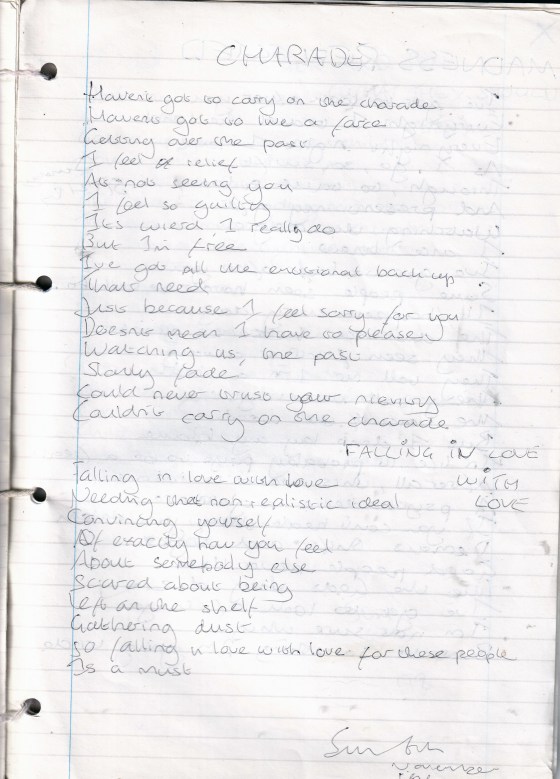 CHARADE
Havent got to carry on the charade
Havent got to live a farce
Getting over the past
I feel relief
At not seeing you
I feel so guilty
Its wierd, I really do
But I'm free
I've got all the emotional back-up
I need
Just because I feel sorry for you
Doesnt mean I have to please
Watching us, the past
Slowly fade,
Could never trust your
Couldn't carry on the charade
FALLING IN LOVE
WITH
LOVE
Falling in love with love
Needing that non realistic ideal
Convincing yourself
Of exactly how you feel
About somebody else
Scared about being
Left on the shelf
Gathering dust
So falling in love with love for these people
Is a must
November